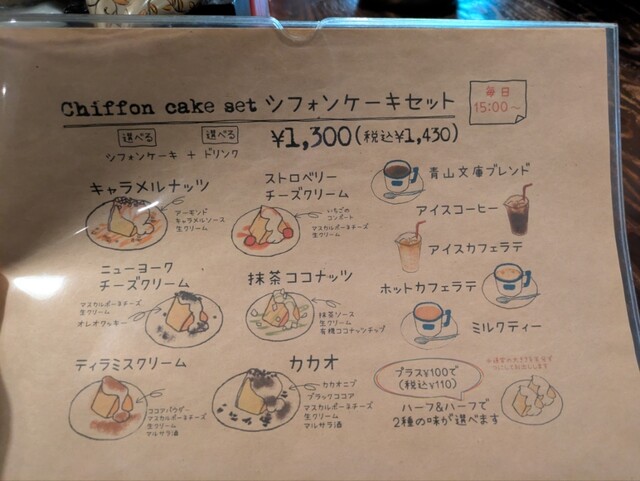 Chiffon cake set シフォンケーキセット
毎日
15:00～
選べる 選べる
シフォンケーキ + ドリンク
¥1,300(税込¥1,430)
キャラメルナッツ
アーモンド
キャラメルソース
生クリーム
ストロベリー
チーズクリーム
いちごの
コンポート
マスカルポーネチーズ
生クリーム
青山文庫ブレンド
アイスコーヒー
アイスカフェラテ
ニューヨーク
チーズクリーム
マスカルポーネチーズ
生クリーム
オレオクッキー
抹茶ココナッツ
抹茶ソース
生クリーム
有機ココナッツチップ
ホットカフェラテ
ミルクティー
ティラミスクリーム
ココアパウダー
マスカルポーネチーズ
生クリーム
マルサラ酒
カカオ
カカオニブ
ブラックココア
マスカルポーネチーズ
生クリーム
マルサラ酒
プラス¥100で
(税込¥110)
ハーフ&ハーフで
2種の味が選べます